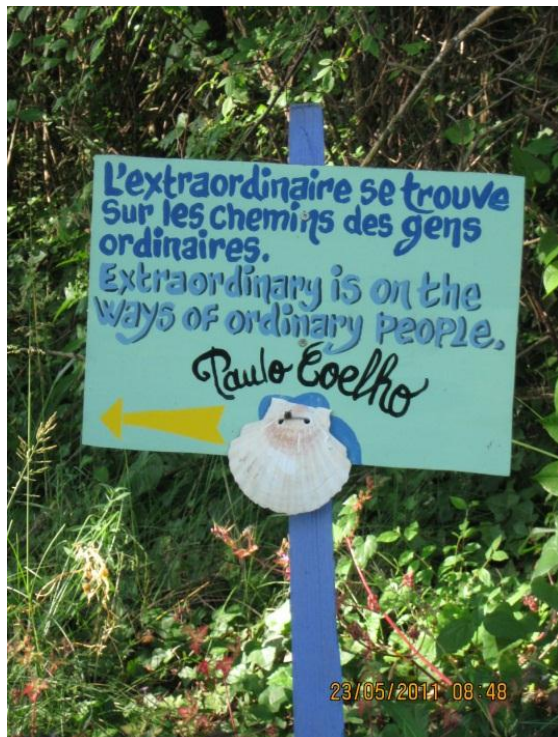 L'extraordinaire se trouve
sur les chemins des gens
ordinaires.
Extraordinary is on the
ways of ordinary people.
Paulo Coelho
23/05/2011 08:48